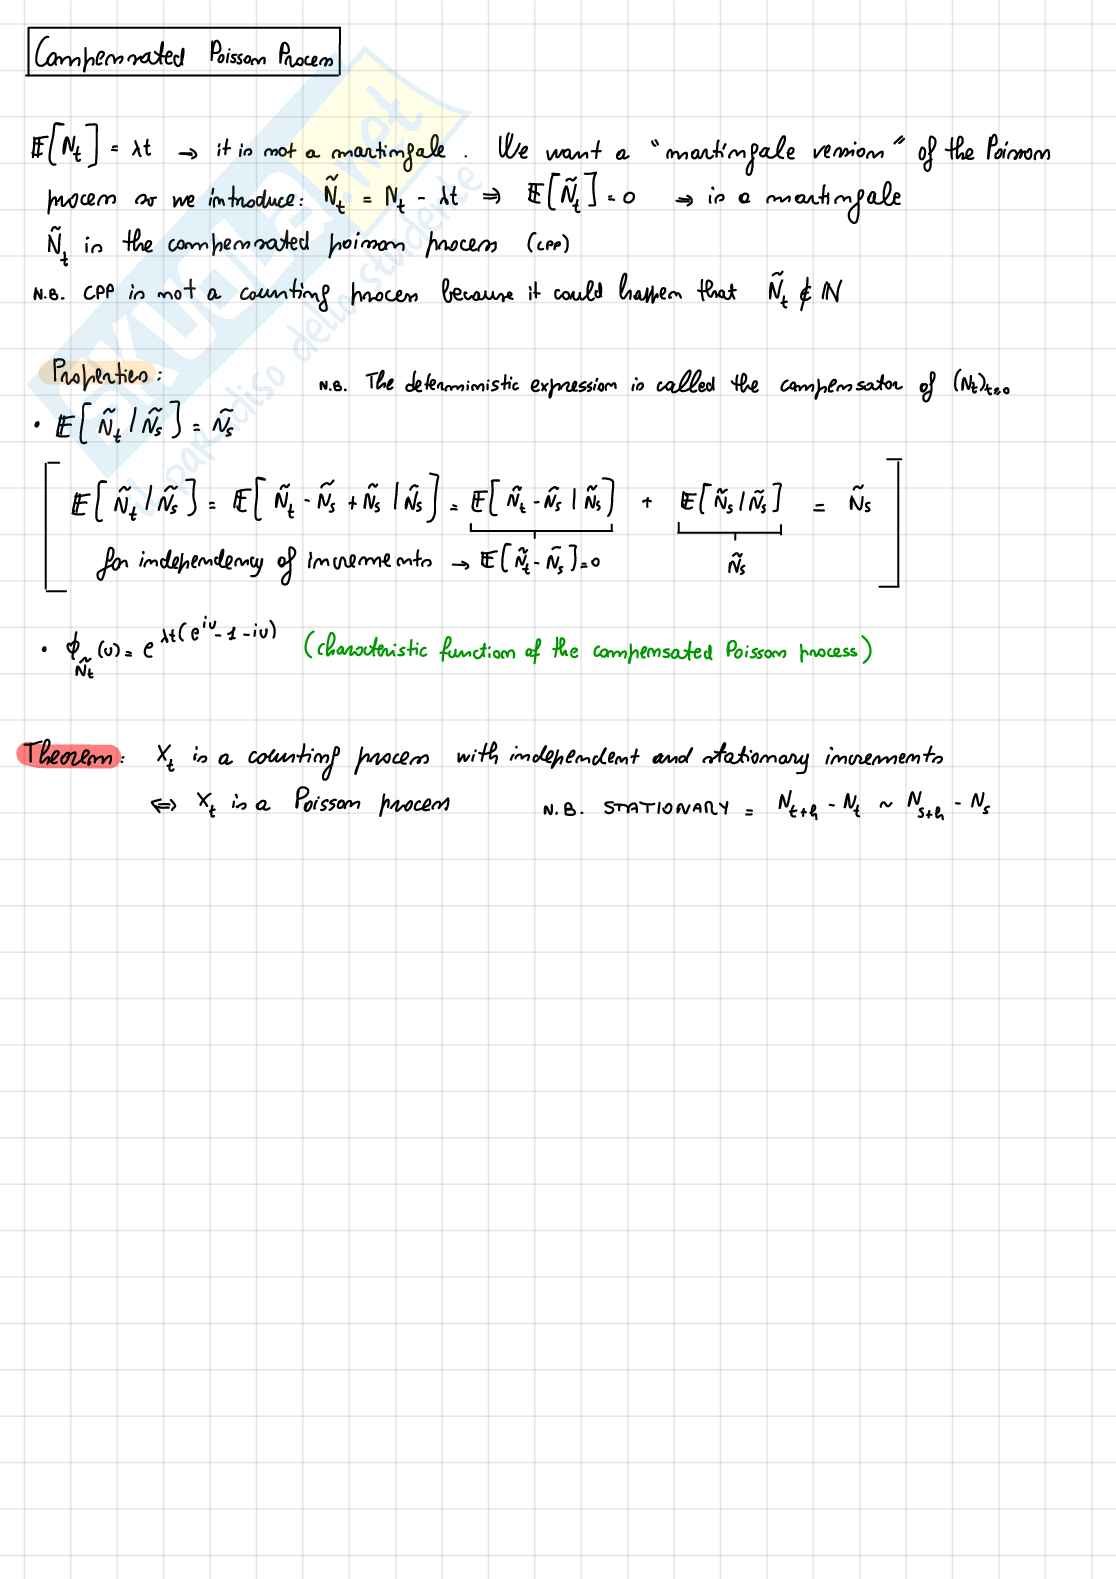 Compensated Poisson Process
𝔼[N_t] = λt → it is not a martingale. We want a "martingale version" of the Poisson
process so we introduce: Ñ_t = N_t - λt ⇒ 𝔼[Ñ_t] = 0 → is a martingale
Ñ_t is the compensated poisson process (CPP)
N.B. CPP is not a counting process because it could happen that Ñ_t ∉ ℕ
Properties:
N.B. The deterministic expression is called the compensator of (N_t)_{t≥0}
• 𝔼[Ñ_t / Ñ_s] = Ñ_s
𝔼[Ñ_t / Ñ_s] = 𝔼[Ñ_t - Ñ_s + Ñ_s | Ñ_s] = 𝔼[Ñ_t - Ñ_s | Ñ_s] + 𝔼[Ñ_s / Ñ_s] = Ñ_s
for independency of increments → 𝔼[Ñ_t - Ñ_s] = 0 Ñ_s
• ϕ_{Ñ_t}(u) = e^{λt(e^{iu} - 1 - iu)} (characteristic function of the compensated Poisson process)
Theorem: X_t is a counting process with independent and stationary increments
⇔ X_t is a Poisson process N.B. STATIONARY = N_{t+h} - N_t ~ N_{s+h} - N_s
SKUOLA.net
il paradiso dello studente